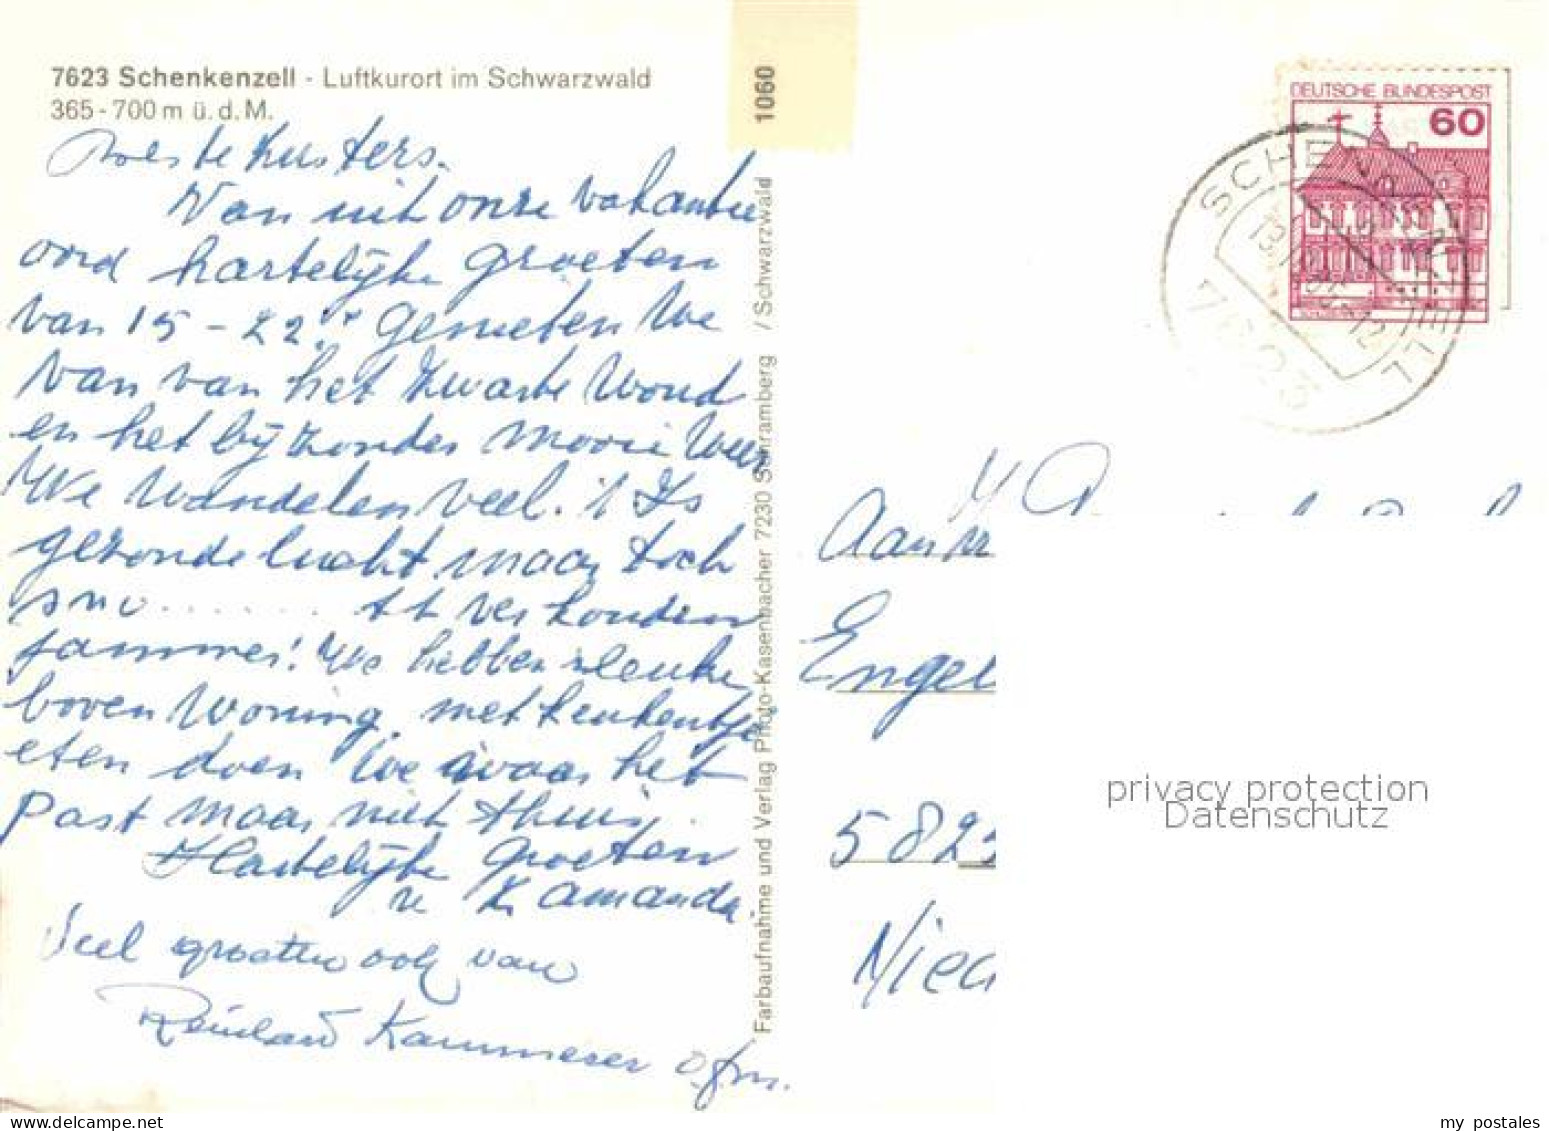 7623 Schenkenzell - Luftkurort im Schwarzwald
365-700 m ü. d. M.
1060
Beste Kusters.
Van uit onze vakantie
oord hartelijke groeten
van 15-22. Genieten we
van van het Zwarte Woud
en het bijzonder mooie weer
We wandelen veel. 't Is
gezonde lucht maar toch
zuster
jammer! We hebben leuke
boven woning met keukentje
eten doen we waar het
past maar niet thuis.
Hartelijke groeten
Zr Amanda
Veel groeten ook van
Reinhard Kammerer ofm.
Farbaufnahme und Verlag Photo-Kasenbacher 7230 Schramberg / Schwarzwald
DEUTSCHE BUNDESPOST
60
SCHENKENZELL
7623
Aan
Engel
5823
Nied
privacy protection
Datenschutz
my postales